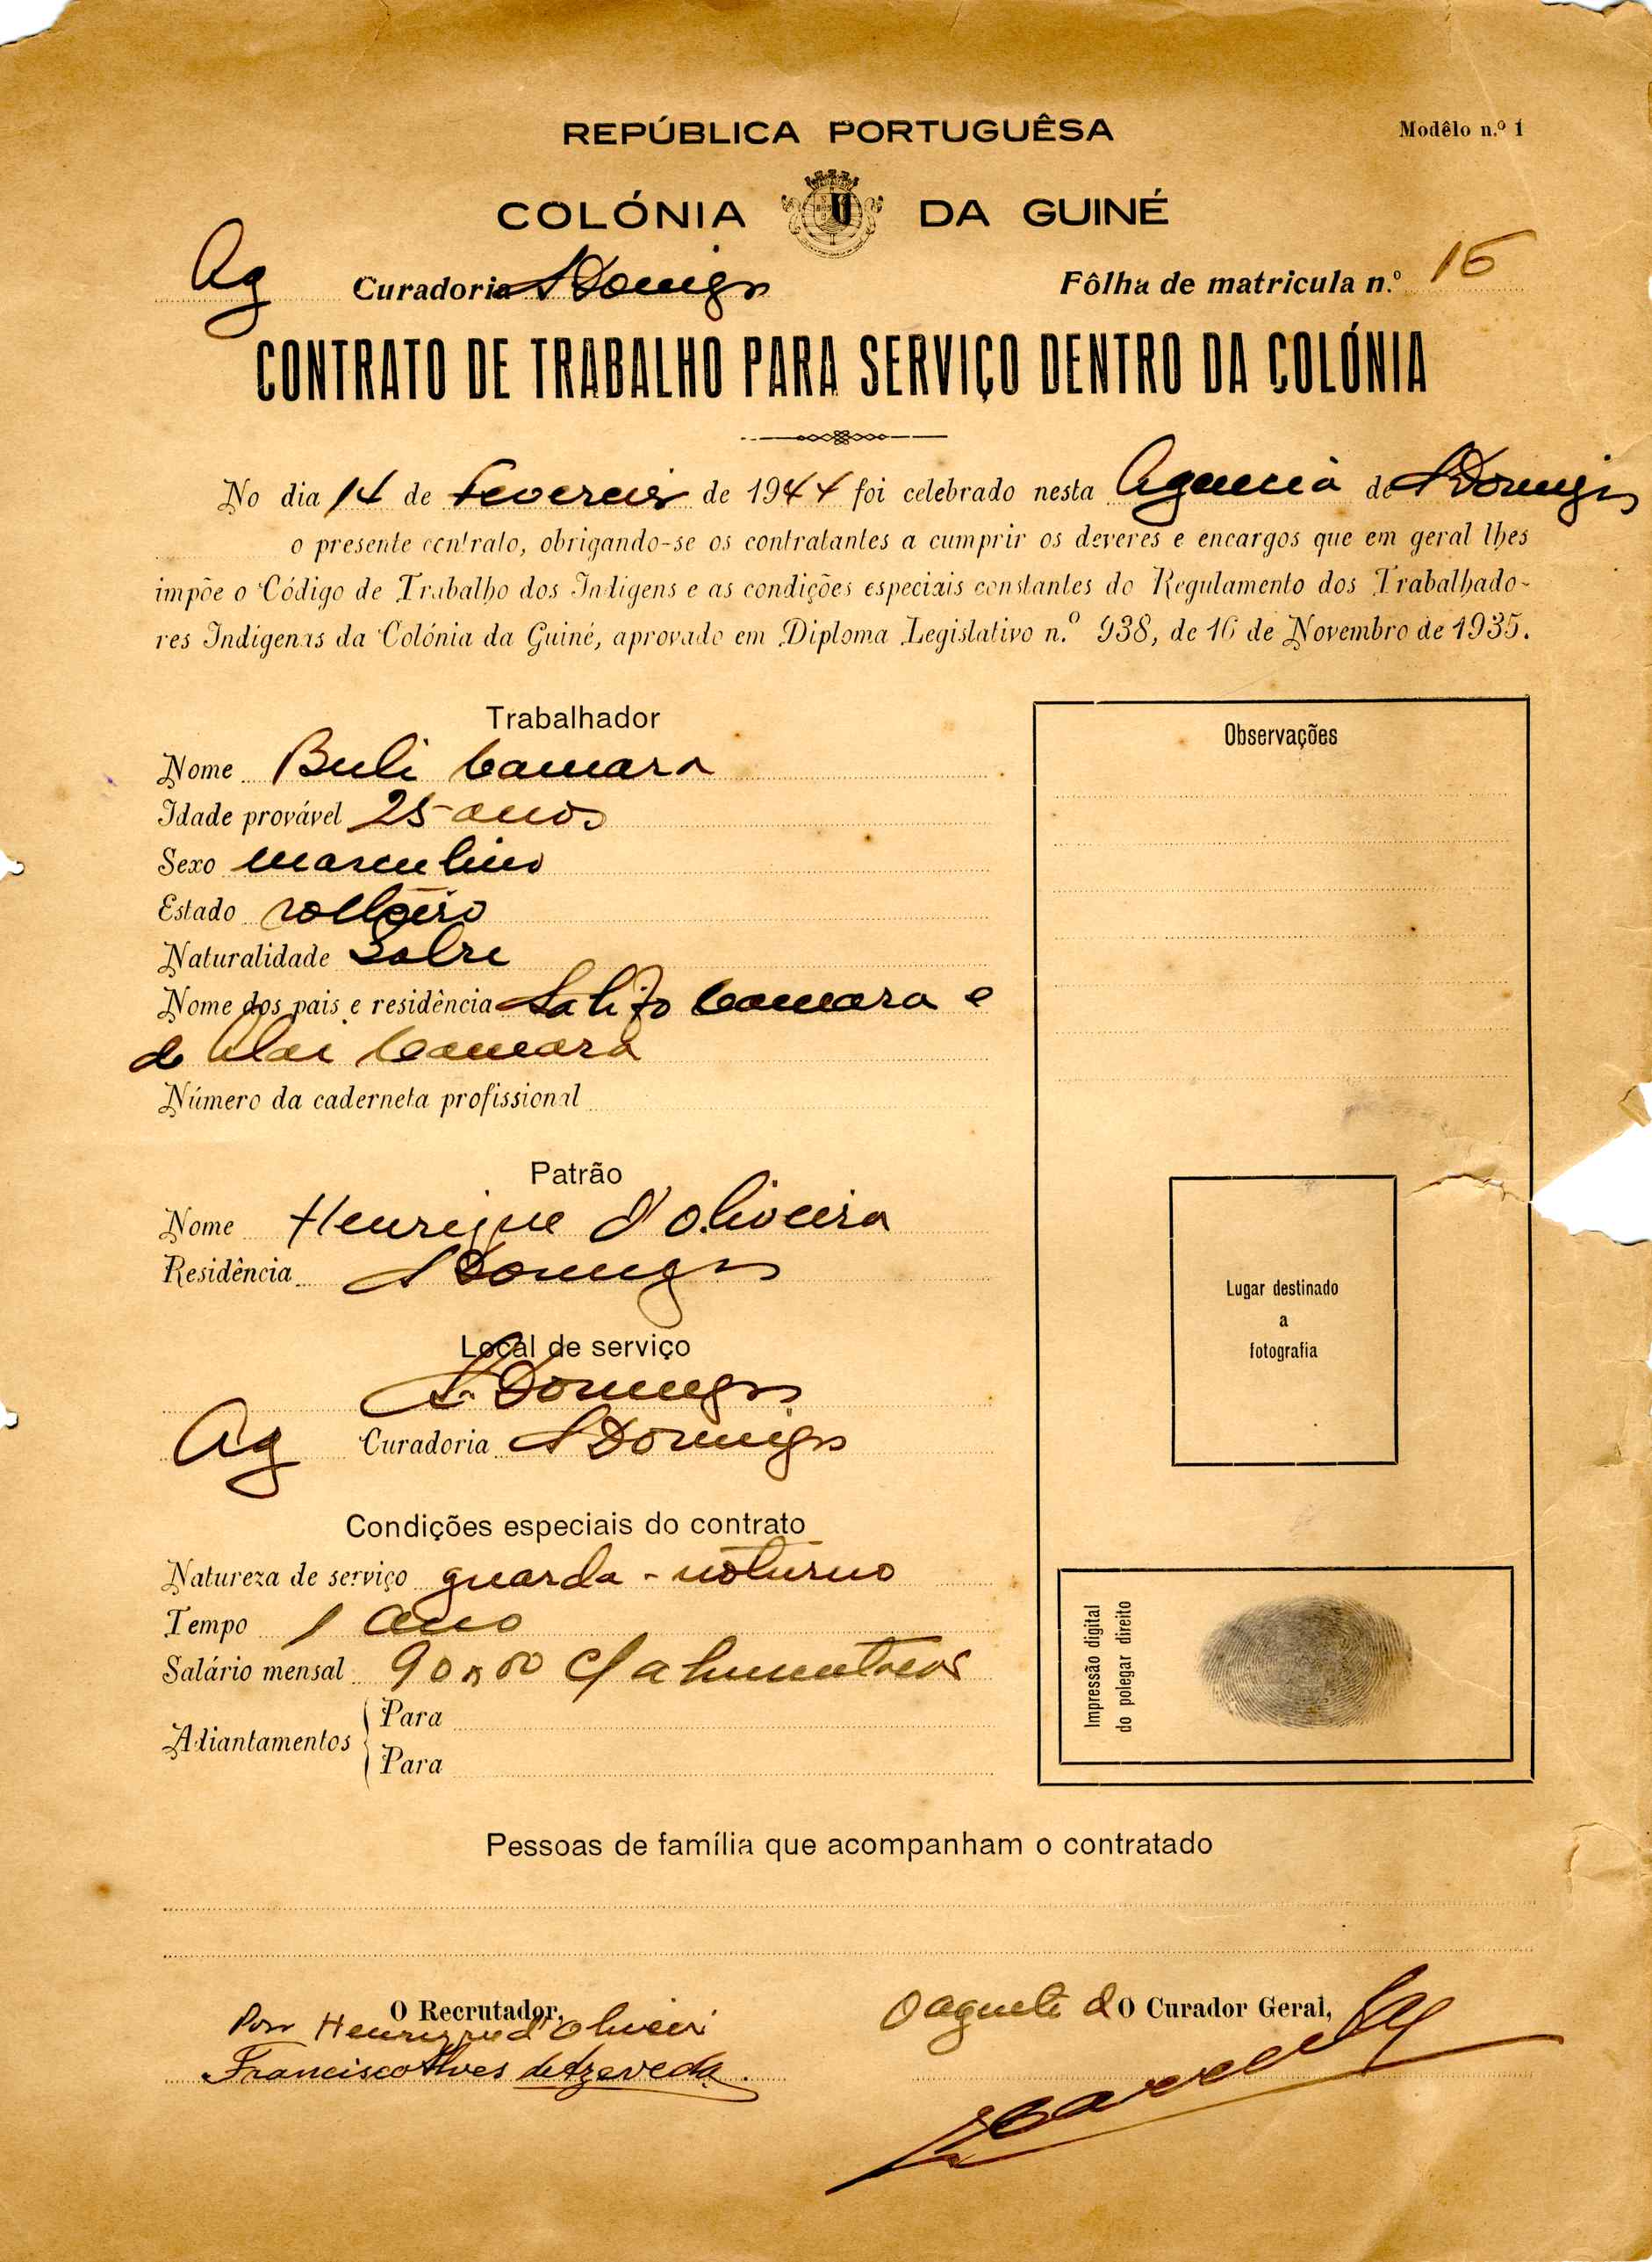 REPÚBLICA PORTUGUÊSA
Modêlo n.º 1
COLÓNIA DA GUINÉ
Ag Curadoria S Domigos Fôlha de matricula n.º 16
CONTRATO DE TRABALHO PARA SERVIÇO DENTRO DA COLÓNIA
No dia 14 de Fevereiro de 1944 foi celebrado nesta Agencia de S Domigos
o presente contrato, obrigando-se os contratantes a cumprir os deveres e encargos que em geral lhes
impõe o Código de Trabalho dos Indigens e as condições especiais constantes do Regulamento dos Trabalhado-
res Indígenas da Colónia da Guiné, aprovado em Diploma Legislativo n.º 938, de 16 de Novembro de 1935.
Trabalhador
Nome Buli Camara
Idade provável 25 anos
Sexo masculino
Estado solteiro
Naturalidade
Nome dos pais e residência Salifo Camara e
de Camara
Número da caderneta profissional
Patrão
Nome Henrique d'Oliveira
Residência S Domingos
Local de serviço
S. Domingos
Ag Curadoria S Domigos
Condições especiais do contrato
Natureza de serviço guarda-noturno
Tempo 1 ano
Salário mensal 90$00 c/
Adiantamentos Para
Para
Observações
Lugar destinado
a
fotografia
Impressão digital
do polegar direito
Pessoas de família que acompanham o contratado
O Recrutador,
Por Henrique d'Oliveira
Francisco Alves de Azevedo
O agente do O Curador Geral,